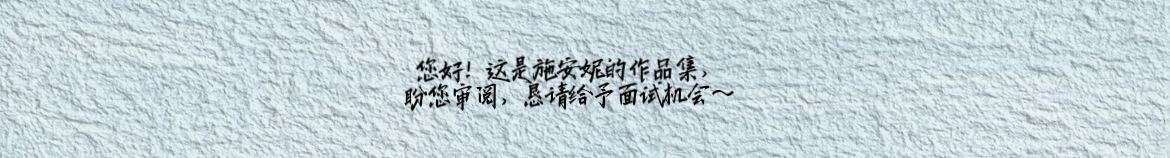 您好！这是施安妮的作品集，
盼您审阅，恳请给予面试机会～